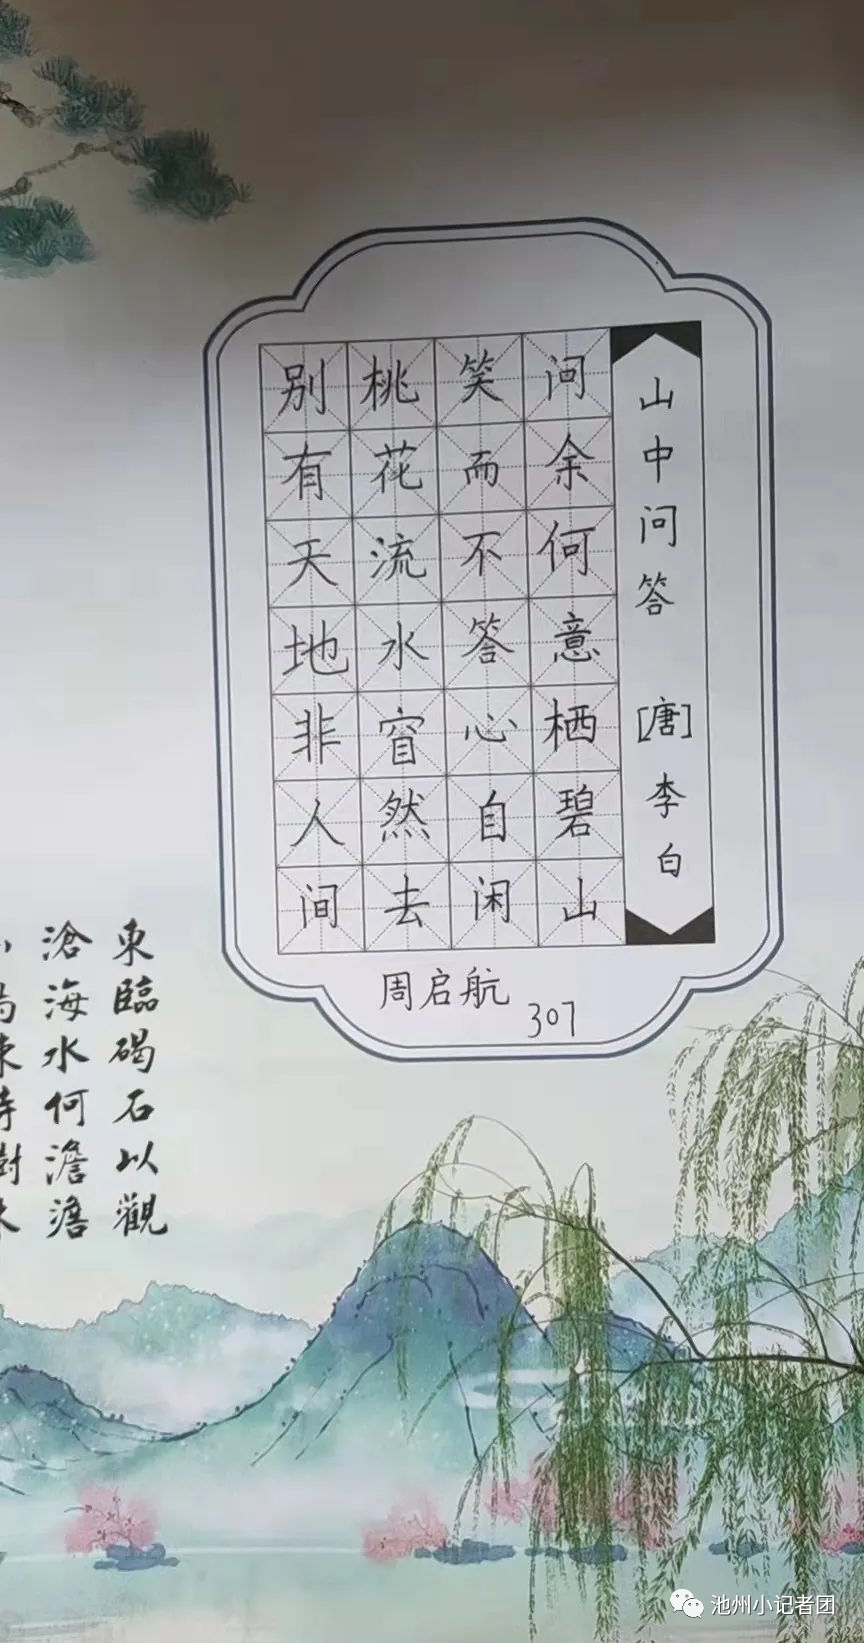 山中问答 [唐] 李白
问余何意栖碧山
笑而不答心自闲
桃花流水窅然去
别有天地非人间
周启航
307
東臨碣石以觀
滄海水何澹澹
池州小记者团